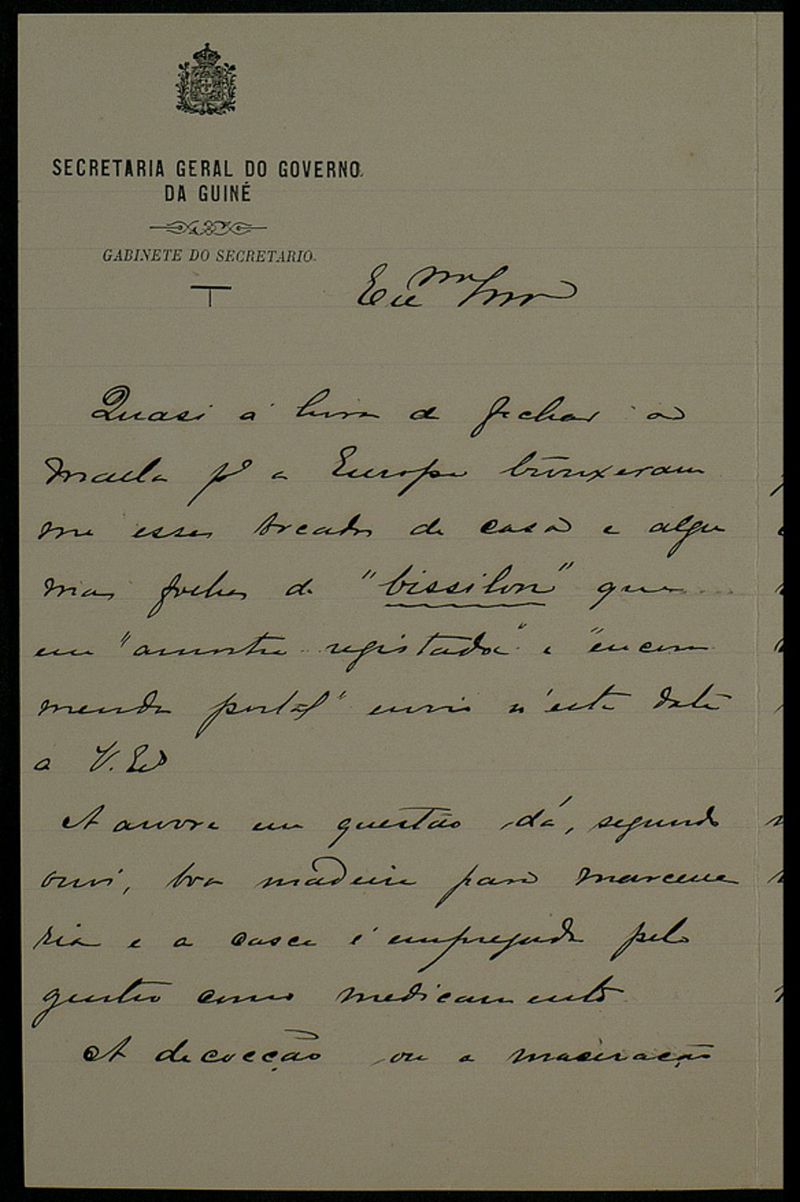 SECRETARIA GERAL DO GOVERNO
DA GUINÉ
GABINETE DO SECRETARIO
Exmo Snr
Quasi á hora de fechar a
mala pª a Europa trouxeram
me esses bocados de casca e algu
mas folhas de "bissilon" que
em "amostra registada" e "encom
menda postal" envio n'esta data
a V. Exª
A arvore em questão dá, segundo
ouvi, boa madeira para marcena
ria e a casca é empregada pelo
gentio como medicamento
A decocção ou a maceração